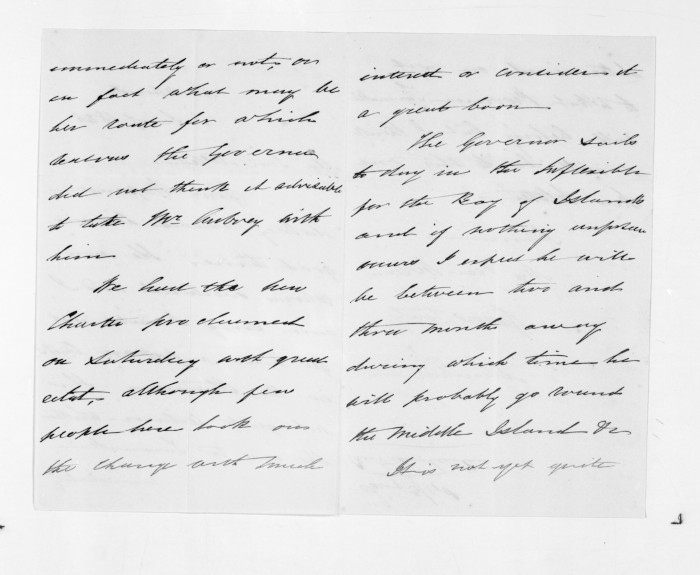 immediately or not, or
in fact what may be
her route for which
reasons the Governor
did not think it advisable
to take Mr Aubrey with
him
We had the new
Charter proclaimed
on Saturday with great
eclat, although few
people here look on
the change with much
interest or consider it
a great boon.
The Governor sails
to day in the Inflexible
for the Bay of Islands
and if nothing unforseen
occurs I expect he will
be between two and
three months away
during which time he
will probably go round
the Middle Island &c
It is not yet quite